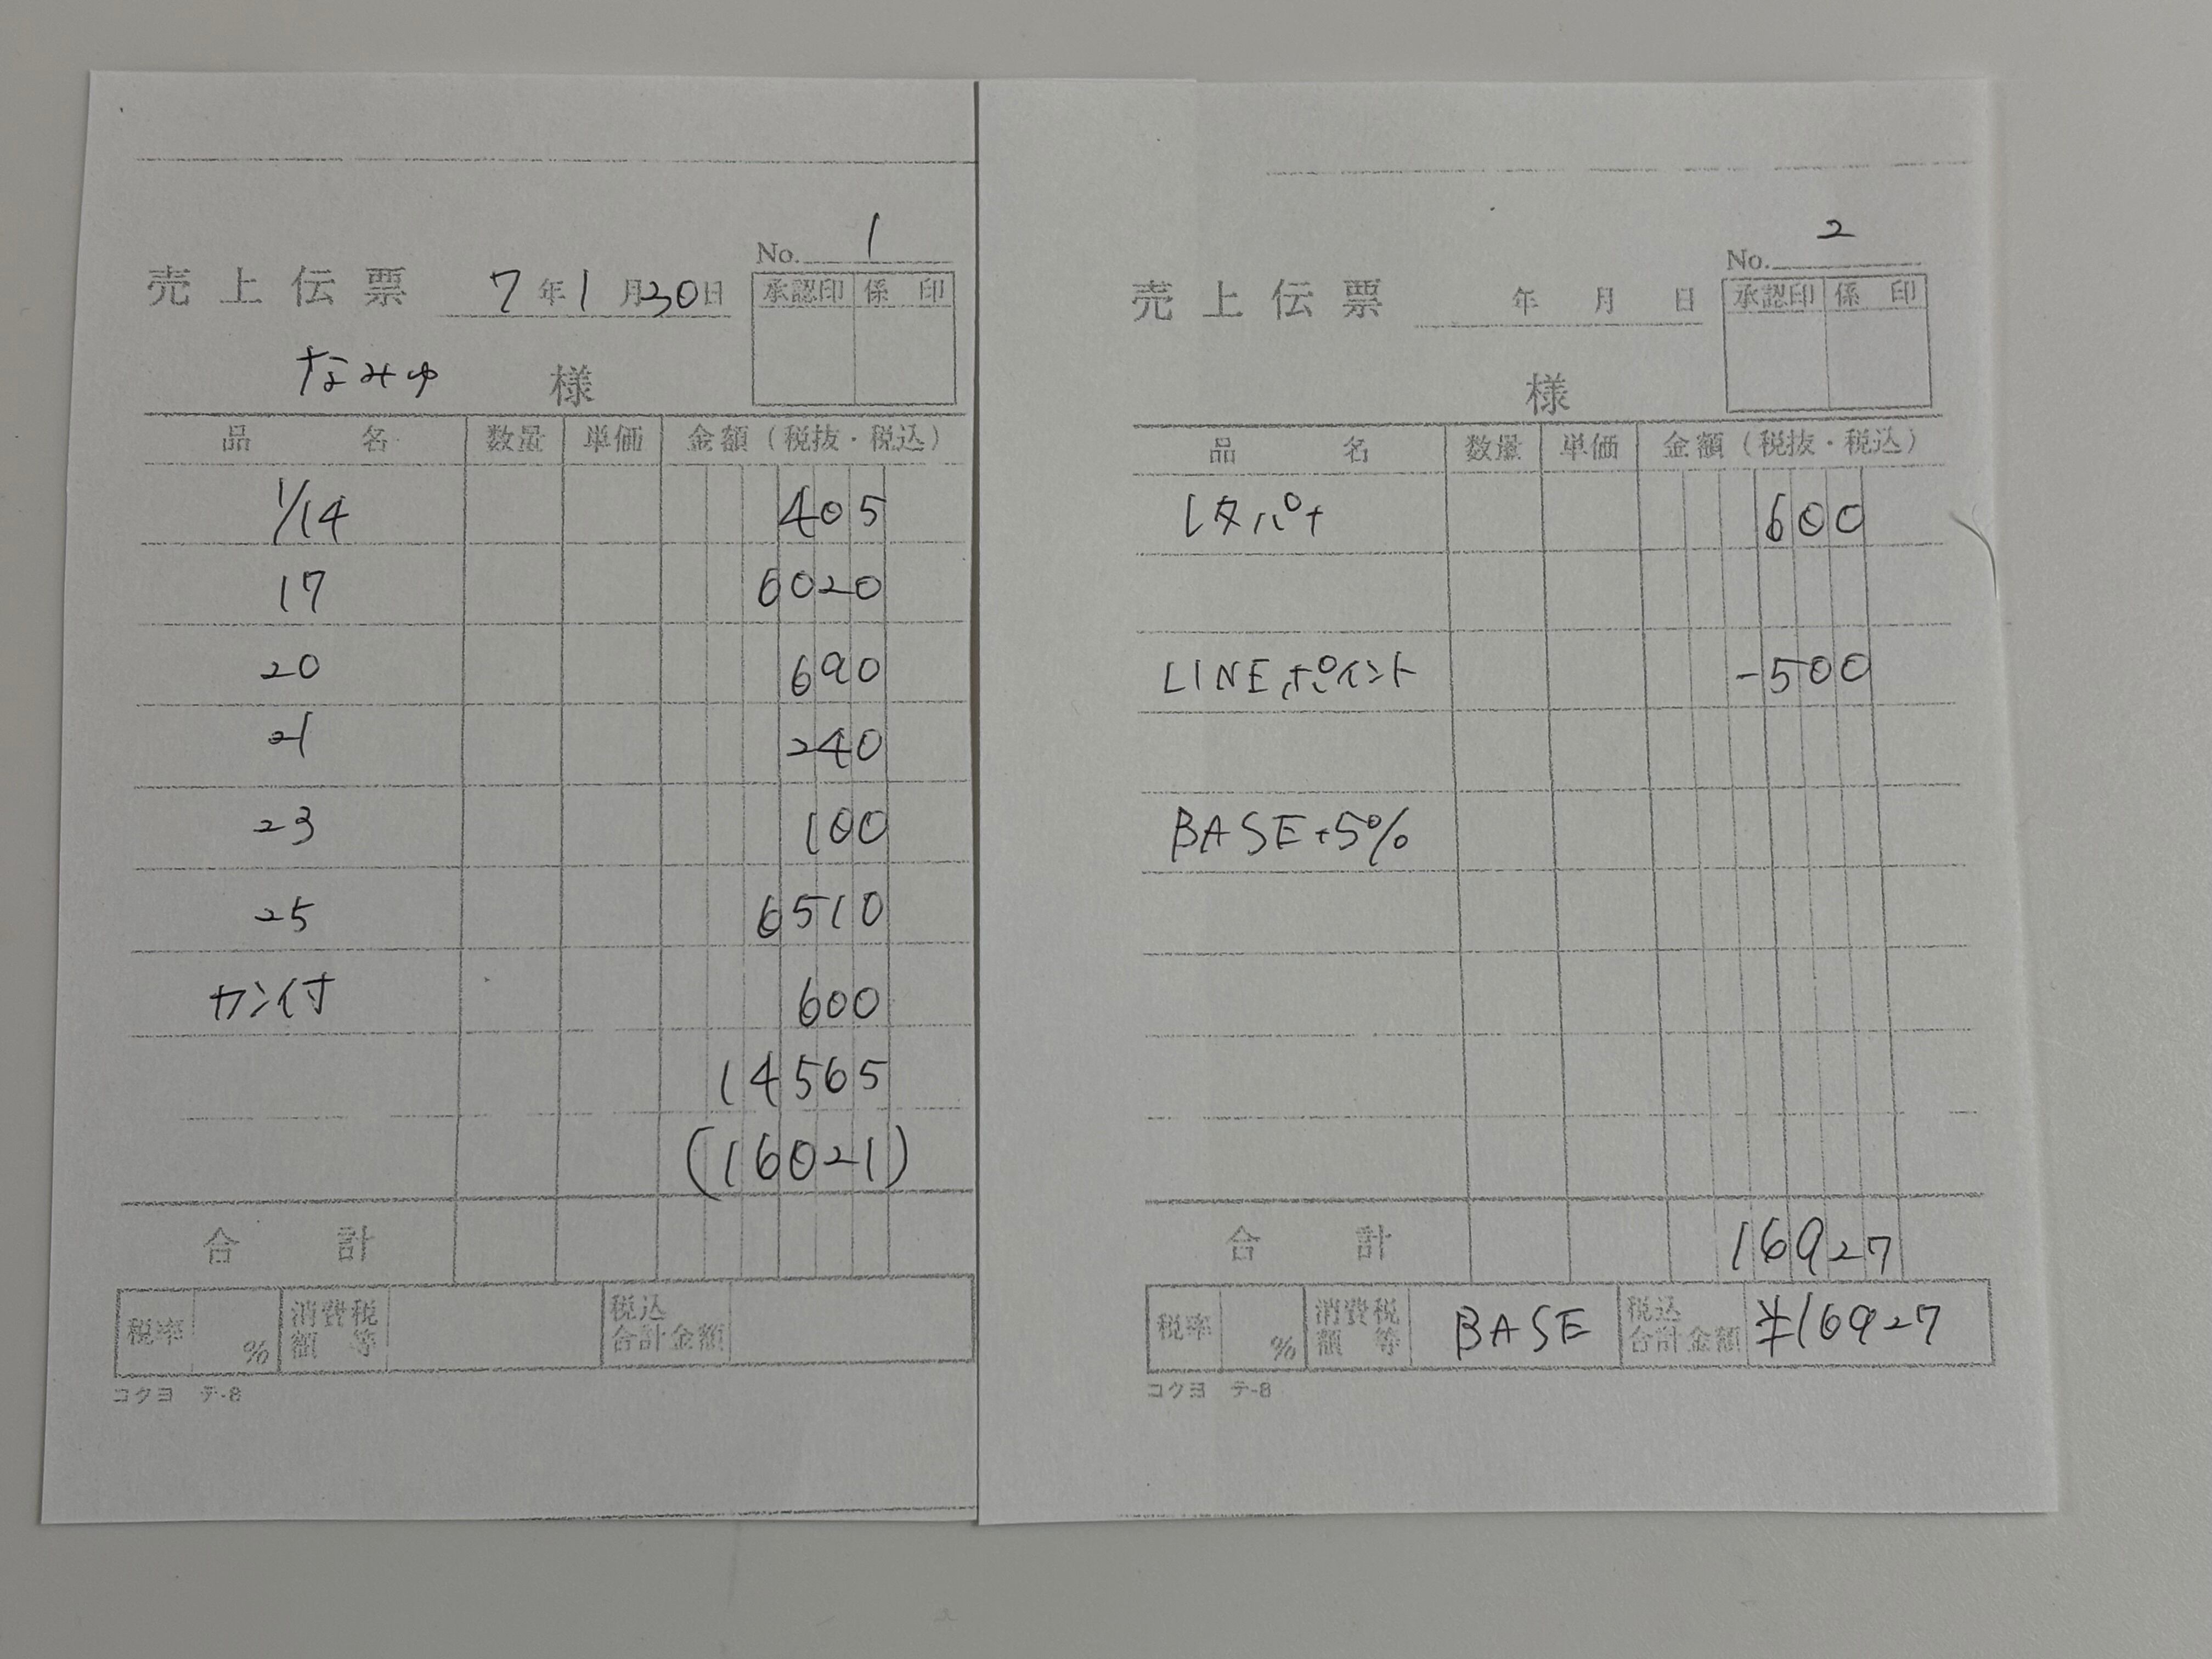 No. 1
売上伝票 7年1月30日
承認印 係印
なみゅ 様
品名 数量 単価 金額（税抜・税込）
1/14 405
17 6020
20 690
21 240
23 100
25 6510
カン付 600
14565
(16021)
合計
税率 % 消費税額等 税込合計金額
コクヨ テ-8
No. 2
売上伝票 年 月 日
承認印 係印
様
品名 数量 単価 金額（税抜・税込）
レタパ+ 600
LINEポイント -500
BASE+5%
合計 16927
税率 % 消費税額等 BASE 税込合計金額 ¥16927
コクヨ テ-8